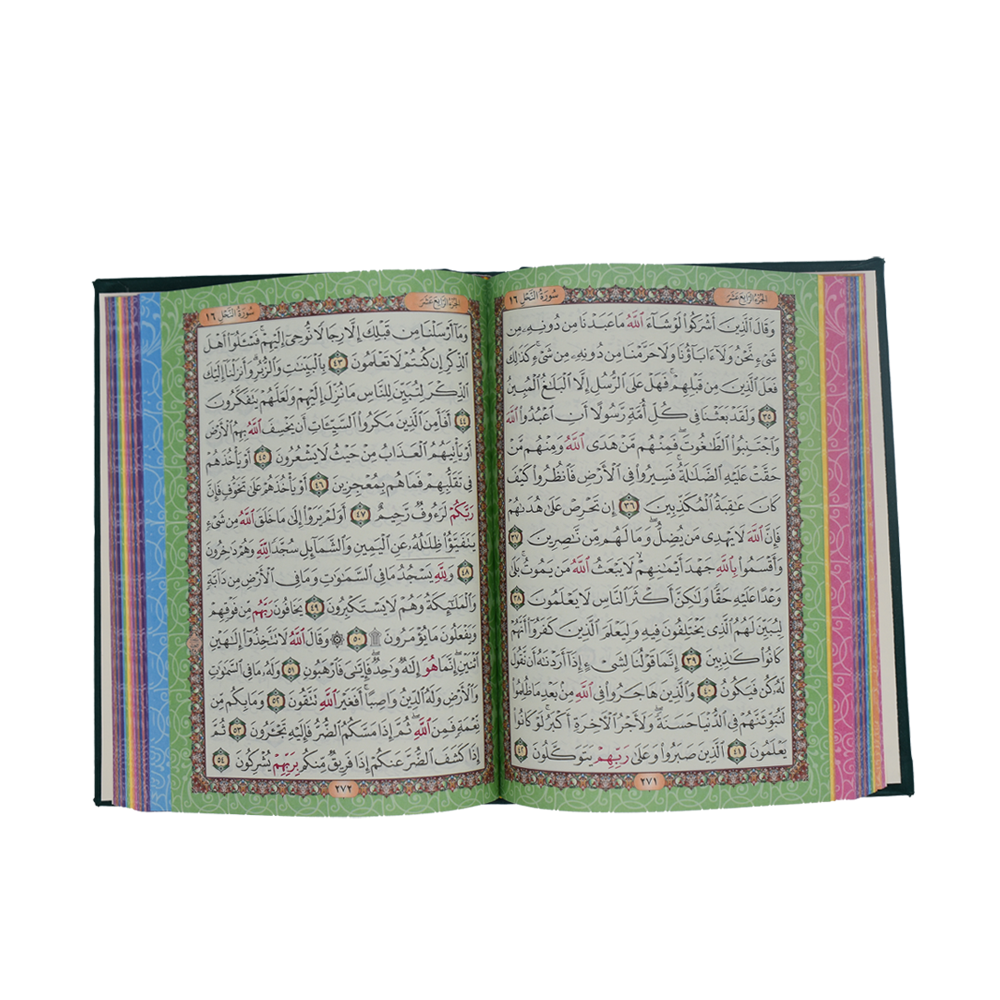 الجزء الرابع عشر
سورة النحل ١٦
وَقَالَ الَّذِينَ أَشْرَكُوا لَوْ شَاءَ اللَّهُ مَا عَبَدْنَا مِن دُونِهِ مِن
شَيْءٍ نَّحْنُ وَلَا ءَابَاؤُنَا وَلَا حَرَّمْنَا مِن دُونِهِ مِن شَيْءٍ كَذَٰلِكَ
فَعَلَ الَّذِينَ مِن قَبْلِهِمْ فَهَلْ عَلَى الرُّسُلِ إِلَّا الْبَلَٰغُ الْمُبِينُ
٣٥ وَلَقَدْ بَعَثْنَا فِي كُلِّ أُمَّةٍ رَّسُولًا أَنِ اعْبُدُوا اللَّهَ
وَاجْتَنِبُوا الطَّٰغُوتَ فَمِنْهُم مَّنْ هَدَى اللَّهُ وَمِنْهُم مَّنْ
حَقَّتْ عَلَيْهِ الضَّلَٰلَةُ فَسِيرُوا فِي الْأَرْضِ فَانظُرُوا كَيْفَ
كَانَ عَٰقِبَةُ الْمُكَذِّبِينَ ٣٦ إِن تَحْرِصْ عَلَىٰ هُدَىٰهُمْ
فَإِنَّ اللَّهَ لَا يَهْدِي مَن يُضِلُّ وَمَا لَهُم مِّن نَّٰصِرِينَ ٣٧
وَأَقْسَمُوا بِاللَّهِ جَهْدَ أَيْمَٰنِهِمْ لَا يَبْعَثُ اللَّهُ مَن يَمُوتُ بَلَىٰ
وَعْدًا عَلَيْهِ حَقًّا وَلَٰكِنَّ أَكْثَرَ النَّاسِ لَا يَعْلَمُونَ ٣٨
لِيُبَيِّنَ لَهُمُ الَّذِي يَخْتَلِفُونَ فِيهِ وَلِيَعْلَمَ الَّذِينَ كَفَرُوا أَنَّهُمْ
كَانُوا كَٰذِبِينَ ٣٩ إِنَّمَا قَوْلُنَا لِشَيْءٍ إِذَا أَرَدْنَٰهُ أَن نَّقُولَ
لَهُ كُن فَيَكُونُ ٤٠ وَالَّذِينَ هَاجَرُوا فِي اللَّهِ مِن بَعْدِ مَا ظُلِمُوا
لَنُبَوِّئَنَّهُمْ فِي الدُّنْيَا حَسَنَةً وَلَأَجْرُ الْآخِرَةِ أَكْبَرُ لَوْ كَانُوا
يَعْلَمُونَ ٤١ الَّذِينَ صَبَرُوا وَعَلَىٰ رَبِّهِمْ يَتَوَكَّلُونَ ٤٢
٢٧١
الجزء الرابع عشر
سورة النحل ١٦
وَمَا أَرْسَلْنَا مِن قَبْلِكَ إِلَّا رِجَالًا نُّوحِي إِلَيْهِمْ فَسْـَٔلُوا أَهْلَ
الذِّكْرِ إِن كُنتُمْ لَا تَعْلَمُونَ ٤٣ بِالْبَيِّنَٰتِ وَالزُّبُرِ وَأَنزَلْنَا إِلَيْكَ
الذِّكْرَ لِتُبَيِّنَ لِلنَّاسِ مَا نُزِّلَ إِلَيْهِمْ وَلَعَلَّهُمْ يَتَفَكَّرُونَ
٤٤ أَفَأَمِنَ الَّذِينَ مَكَرُوا السَّيِّـَٔاتِ أَن يَخْسِفَ اللَّهُ بِهِمُ الْأَرْضَ
أَوْ يَأْتِيَهُمُ الْعَذَابُ مِنْ حَيْثُ لَا يَشْعُرُونَ ٤٥ أَوْ يَأْخُذَهُمْ
فِي تَقَلُّبِهِمْ فَمَا هُم بِمُعْجِزِينَ ٤٦ أَوْ يَأْخُذَهُمْ عَلَىٰ تَخَوُّفٍ فَإِنَّ
رَبَّكُمْ لَرَءُوفٌ رَّحِيمٌ ٤٧ أَوَلَمْ يَرَوْا إِلَىٰ مَا خَلَقَ اللَّهُ مِن شَيْءٍ
يَتَفَيَّؤُا ظِلَٰلُهُ عَنِ الْيَمِينِ وَالشَّمَائِلِ سُجَّدًا لِّلَّهِ وَهُمْ دَاخِرُونَ
٤٨ وَلِلَّهِ يَسْجُدُ مَا فِي السَّمَٰوَٰتِ وَمَا فِي الْأَرْضِ مِن دَابَّةٍ
وَالْمَلَٰئِكَةُ وَهُمْ لَا يَسْتَكْبِرُونَ ٤٩ يَخَافُونَ رَبَّهُم مِّن فَوْقِهِمْ
وَيَفْعَلُونَ مَا يُؤْمَرُونَ ۩ ٥٠ ۞ وَقَالَ اللَّهُ لَا تَتَّخِذُوا إِلَٰهَيْنِ
اثْنَيْنِ إِنَّمَا هُوَ إِلَٰهٌ وَٰحِدٌ فَإِيَّٰيَ فَارْهَبُونِ ٥١ وَلَهُ مَا فِي السَّمَٰوَٰتِ
وَالْأَرْضِ وَلَهُ الدِّينُ وَاصِبًا أَفَغَيْرَ اللَّهِ تَتَّقُونَ ٥٢ وَمَا بِكُم مِّن
نِّعْمَةٍ فَمِنَ اللَّهِ ثُمَّ إِذَا مَسَّكُمُ الضُّرُّ فَإِلَيْهِ تَجْـَٔرُونَ ٥٣ ثُمَّ
إِذَا كَشَفَ الضُّرَّ عَنكُمْ إِذَا فَرِيقٌ مِّنكُم بِرَبِّهِمْ يُشْرِكُونَ ٥٤
٢٧٢